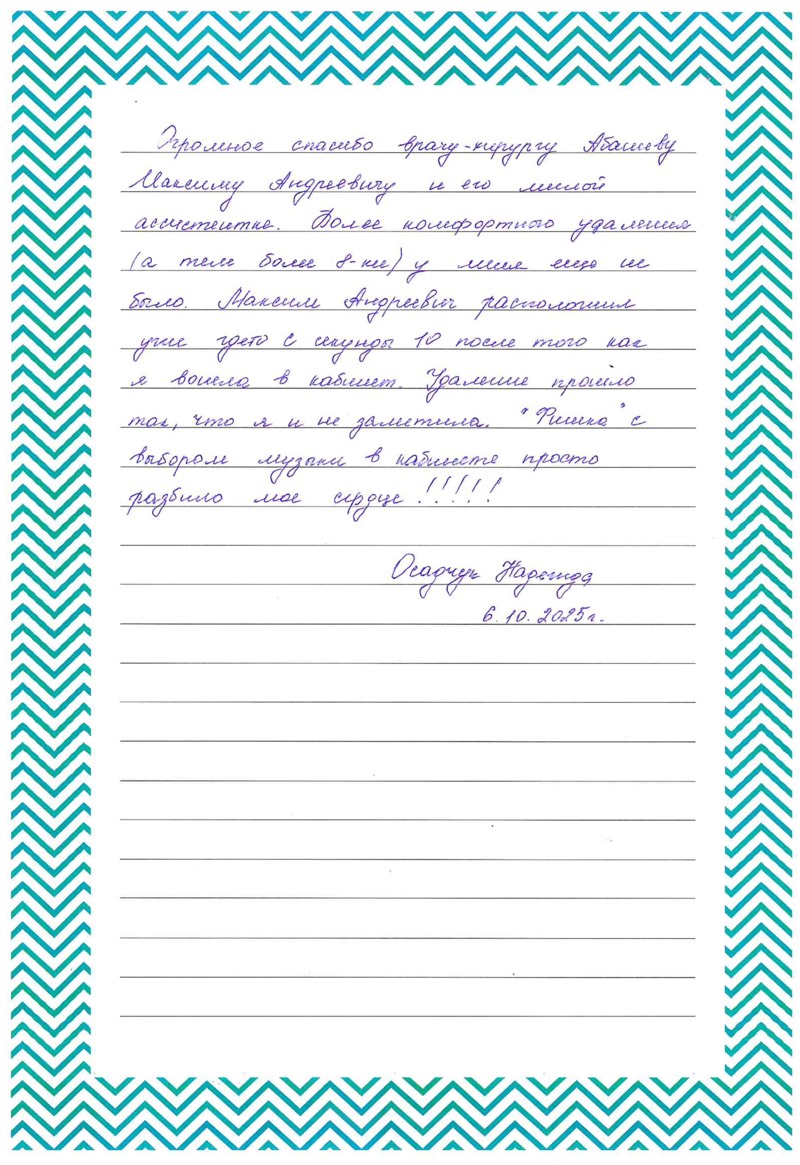 Огромное спасибо врачу-хирургу Абашеву
Максиму Андреевичу и его милой
ассистентке. Более комфортного удаления
(а тем более 8-ки) у меня ещё не
было. Максим Андреевич расположил
уже гдето с секунды 10 после того как
я вошла в кабинет. Удаление прошло
так, что я и не заметила. "Фишка" с
выбором музыки в кабинете просто
разбило мое сердце !!!!!
Осадчук Надежда
6.10.2025г.